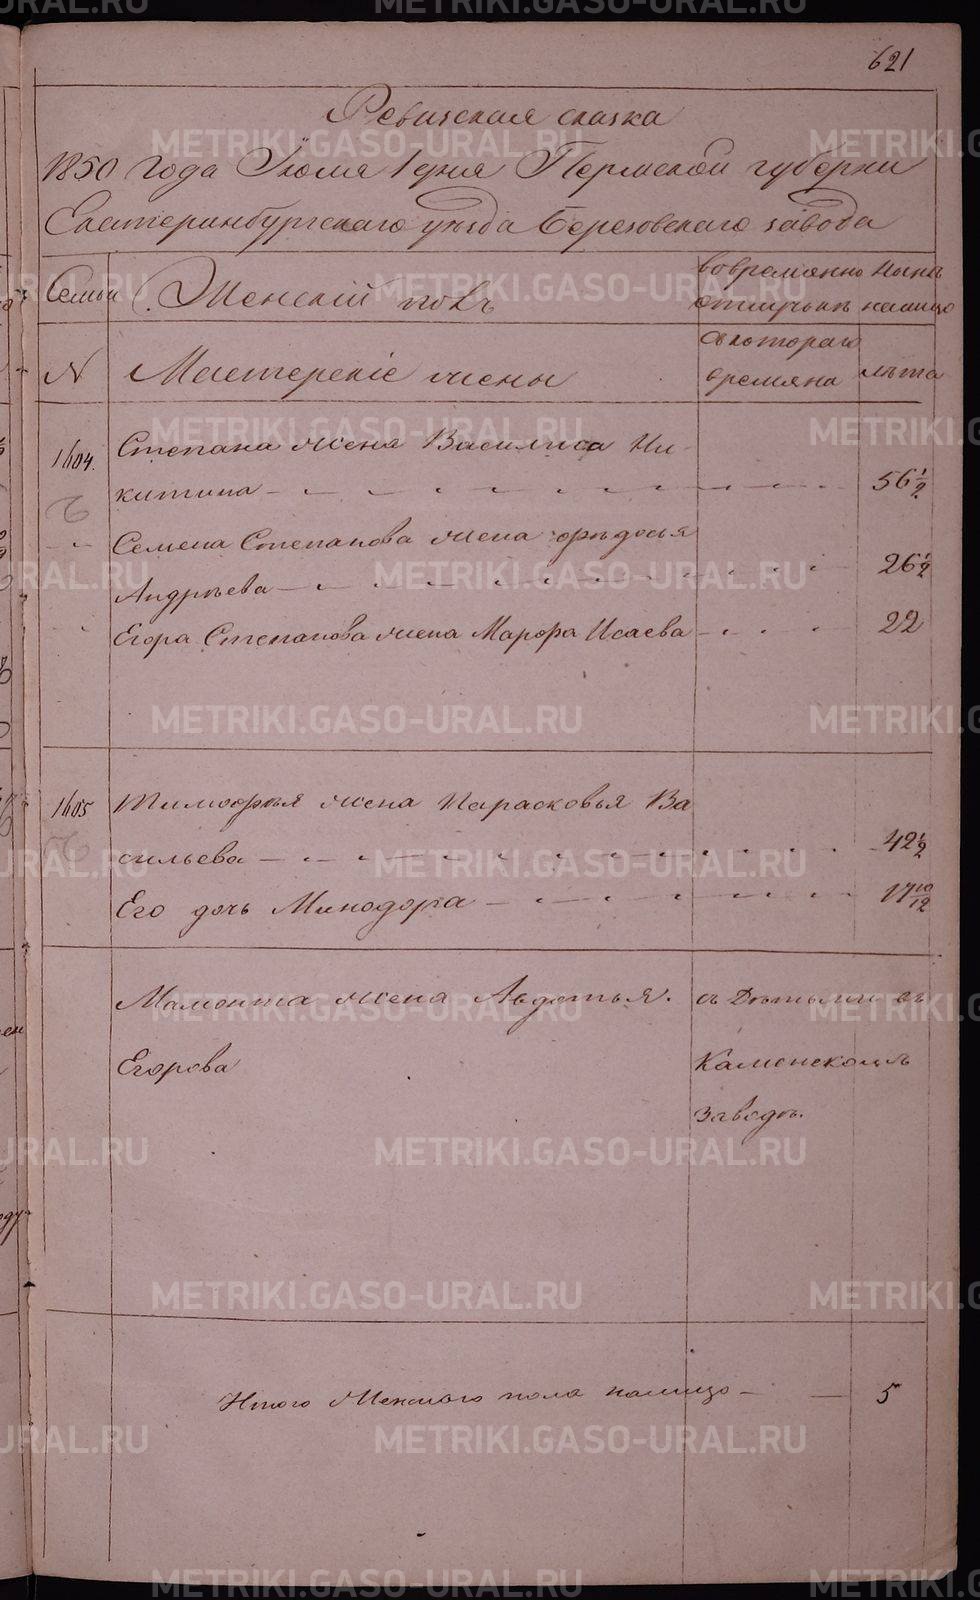 621
Ревизская сказка
1850 года Июля 1 дня Пермской губернии
Екатеринбургскаго уѣзда Березовскаго завода
Семьи Женскій полъ вовремянно ​нынѣ
отлучкѣ налицо
N Мастерскіе жены
скотораго
времяни лѣта
1604. Степана жена Василиса Ни-
китина 56 1/2
Семена Степанова жена Фѣдосья
Андрѣева 26 1/2
Егора Степанова жена Марфа Исаева 22
1605 Тимофѣя жена Парасковья Ва
сильева 42 1/2
Его дочь Минодора 17 10/12
Мамонта жена Авдотья. съ Дѣтьми въ
Егорова Каменскомъ
заводѣ.
Итого Женскаго пола налицо 5
METRIKI.GASO-URAL.RU